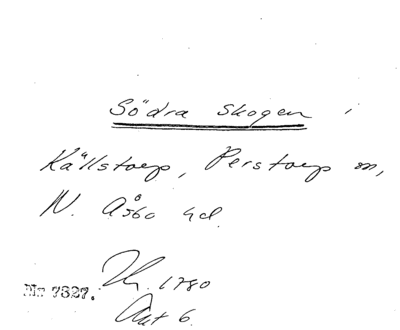 Södra Skogen i
Källstorp, Perstorp sn,
N. Åsbo hd.
1780
Nr 7327.
Akt 6.